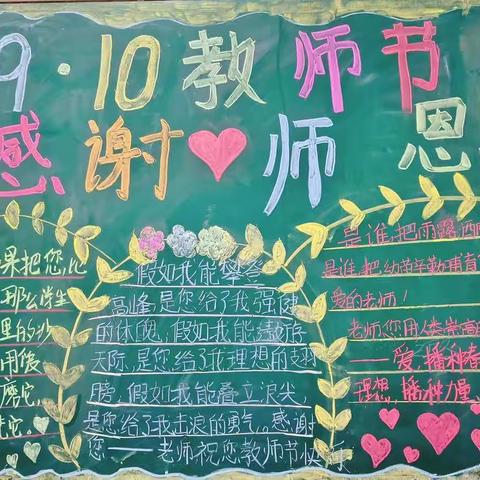 9·10教师节
感谢师恩
果把您,比
那么学生
里的沙
用傻
磨它,
假如我能攀登
高峰,是您给了我强健
的体魄,假如我能遨游
天际,是您给了我理想的翅
膀,假如我能叠立浪尖,
是您给了我击浪的勇气。感谢
您——老师祝您教师节快
是谁,把雨露洒
是谁,把幼苗辛勤哺育
爱的老师!
老师,您用人类崇高
——爱,播种春
理想,播种力量